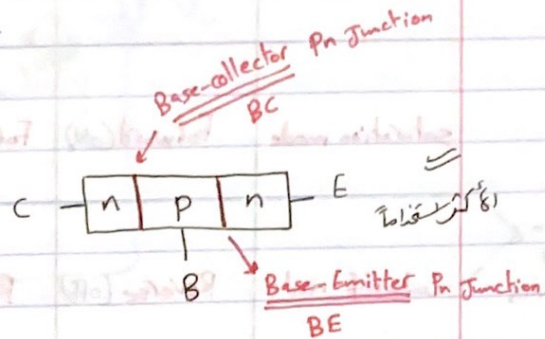 Base-collector Pn Junction
BC
C n p n E
الأكثر استخداماً
B
Base-Emitter Pn Junction
BE